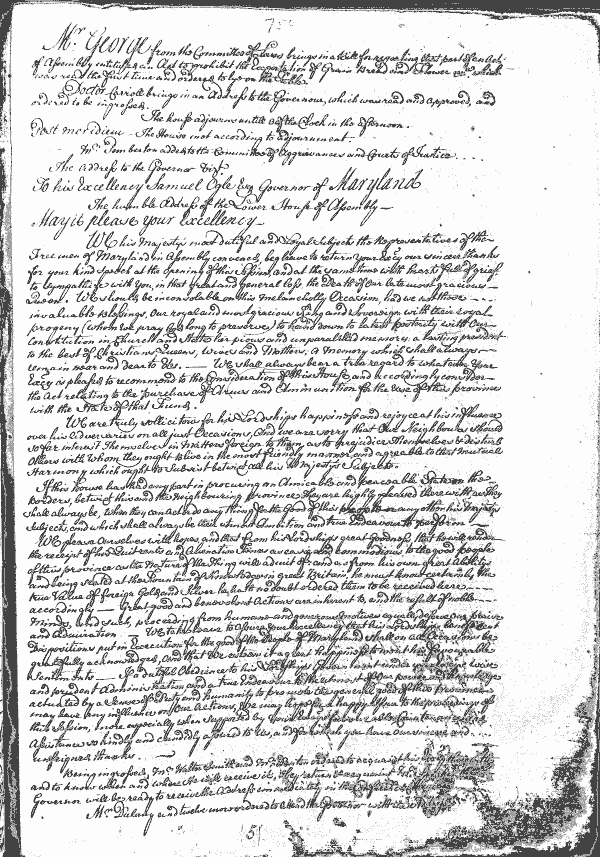 Mr. George from the Committee of Laws brings in a Bill for repealing that part of an Act
of Assembly entituled an Act to prohibit the Exportation of Grain Bread and Flower &c. which
was read the first time and ordered to lye on the Table.
Doctor Carroll brings in an Address to the Governour, which was read and approved, and
ordered to be ingrossed.
The house adjourns untill 2 of the Clock in the afternoon.
Post meridiem The House met according to adjournment.
Mr. Pemberton added to the Committee of Aggrievances and Courts of Justice
The Address to the Governor Vizt.
To his Excellency Samuel Ogle Esq Governor of Maryland
The humble Address of the Lower House of Assembly
May it please your Excellency
We his Majestys most dutiful and Loyal Subjects the Representatives of the
Freemen of Maryland in Assembly convened, beg leave to return your Excy our sincere thanks
for your kind Speech at the opening of this Session, and at the same time with hearts full of grief
to sympathise with you, in that great and general loss, the Death of our late most gracious
Queen. We should be inconsolable on this Melancholly Occasion, had we not those
invaluable Blessings, Our royal and most gracious King and Sovereign with their royal
progeny (whom we pray God long to preserve) to hand down to latest posterity with Our
Constitution in Church and State her pious and unparallelled memory, a lasting president
to the best of Christians, Queens, Wives and Mothers, a memory which shall always
remain near and dear to Us. We shall always bear a true regard to what ever Your
Excy is pleased to recommend to the Consideration of this House, and accordingly consider
the Act relating to the purchase of Arms and Ammunition for the ease of this province
with the State of that Fund.
We are truly sollicitous for his Lordships happiness and rejoyce at his influence
over his adversaries on all just Occasions, And we are sorry that Our Neighbours should
so far interest Themselves in Matters foreign to them, as to prejudice Themselves & disturb
Others with whom they ought to live in the most friendly manner, and agreeable to that mutual
Harmony which ought to Subsist between all his Majestys Subjects.
If this house has had any part in procuring an Amicable and peaceable State on the
borders, betwixt this and the Neighbouring province They are highly pleased therewith as They
shall always be, when they can act or do any thing for the Good of this people or any other his Majestys
Subjects, and which shall always be their utmost Ambition and true Endeavour to perform
We please ourselves with hopes and that from his Lordships great Goodness, that he will render
the receipt of his Quit rents and Alienation Fines as easy and commodious, to the good people
of this province as the Nature of the Thing will admit of; and as from his own great Abilities
and being seated at the Fountain of Knowledge in great Britain, he must know certainly the
true Value of foreign Gold and Silver, he has no doubt ordered them to be received here
accordingly. Great good and benevolent Actions are inherent to, and the result of noble
Minds, and such, proceeding from humane and generous motives equally deserve our praise
and admiration. We take leave to assure your Excellency that his Lordships benevolent
Dispositions put in Execution for the good of the People of Maryland shall on all Occasions be
gratefully acknowledged, And that We esteem it a great Happiness to merit his favourable
Sentiments. If a dutiful Obedience to his Lordships Government under your Excys wise
and prudent Administration and a true Endeavour to the utmost of Our power and knowledge
actuated by a Sense of duty and humanity to promote the general good of this province
may have any influence on Our Actions, We may hope for a happy Issue to the proceedings of
this Session, more especially when supported by your Excys favourable Countenance and
Assistance so kindly and candidly assured to Us, and for which you have our sincere and
unfeigned thanks.
Being ingrossed, Mr. Walter Smith and Mr. ordered to acquaint his Excy therewith
and to know when and where he will receive it, They return & acquaint Mr.
Governor will be ready to receive the Address immediately in the
Mr. Dulany and twelve more ordered to attend the Governor with it
51